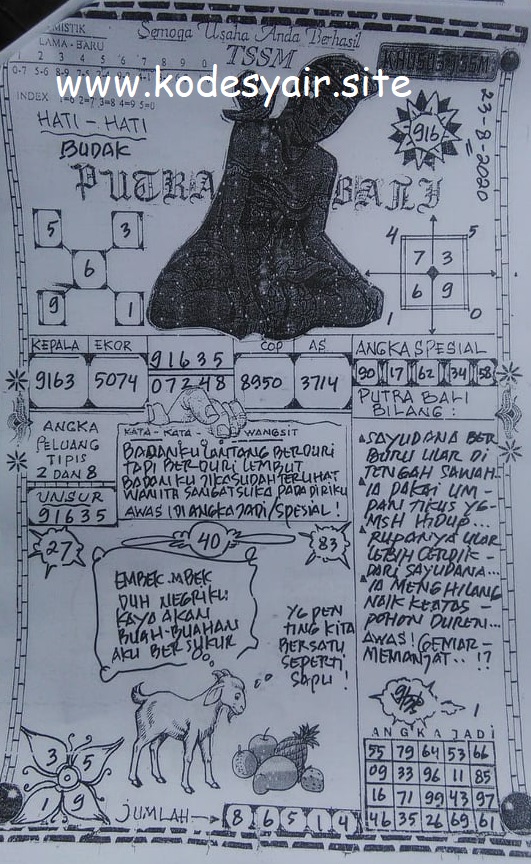 MISTIK
LAMA - BARU
Semoga Usaha Anda Berhasil
TSSM
www.kodesyair.site
INDEX 1=6 2=7 3=8 4=9 5=0
HATI - HATI
BUDAK
PUTRA BALI
916
23-8-2020
5 3
6
9 1
4 5
7 3
6 9
1 0
KEPALA EKOR
9163 5074
91635
07248
COP AS
8950 3714
ANGKA SPESIAL
90 17 62 34 58
PUTRA BALI
BILANG :
ANGKA
PELUANG
TIPIS
2 DAN 8
UNSUR
91635
KATA - KATA WANGSIT
BADANKU LANTANG BERDURI
TAPI BERDURI LEMBUT
BADANKU JIKA SUDAH TERLIHAT
WANITA SANGAT SUKA PADA DIRIKU
AWAS! DI ANGKA JADI/SPESIAL!
SAYUDANA BER
BURU ULAR DI
TENGAH SAWAH..
IA PAKAI UM-
PAN TIKUS YG-
MSH HIDUP...
RUPANYA ULAR
LEBIH CERDIK-
DARI SAYUDANA...
IA MENGHILANG
NAIK KEATAS-
POHON DUREN...
AWAS! GEMAR-
MEMANJAT..!?
27
40
83
EMBEK.MBEK
DUH NEGRIKU
KAYA AKAN
BUAH-BUAHAN
AKU BERSYUKUR
YG PEN
TING KITA
BERSATU
SEPERTI
SAPU!
3 5
1 9
JUMLAH → 8 6 5 1 4
ANGKA JADI
55 79 64 53 66
09 33 96 11 85
16 71 99 43 97
46 35 26 69 61